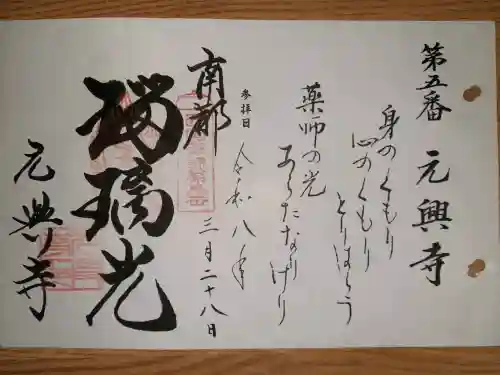 第五番 元興寺
身のくもり
心のくもり
とりはらう
薬師の光
あらたなりけり
参拝日 令和八年
三月二十八日
南都
瑠璃光
元興寺